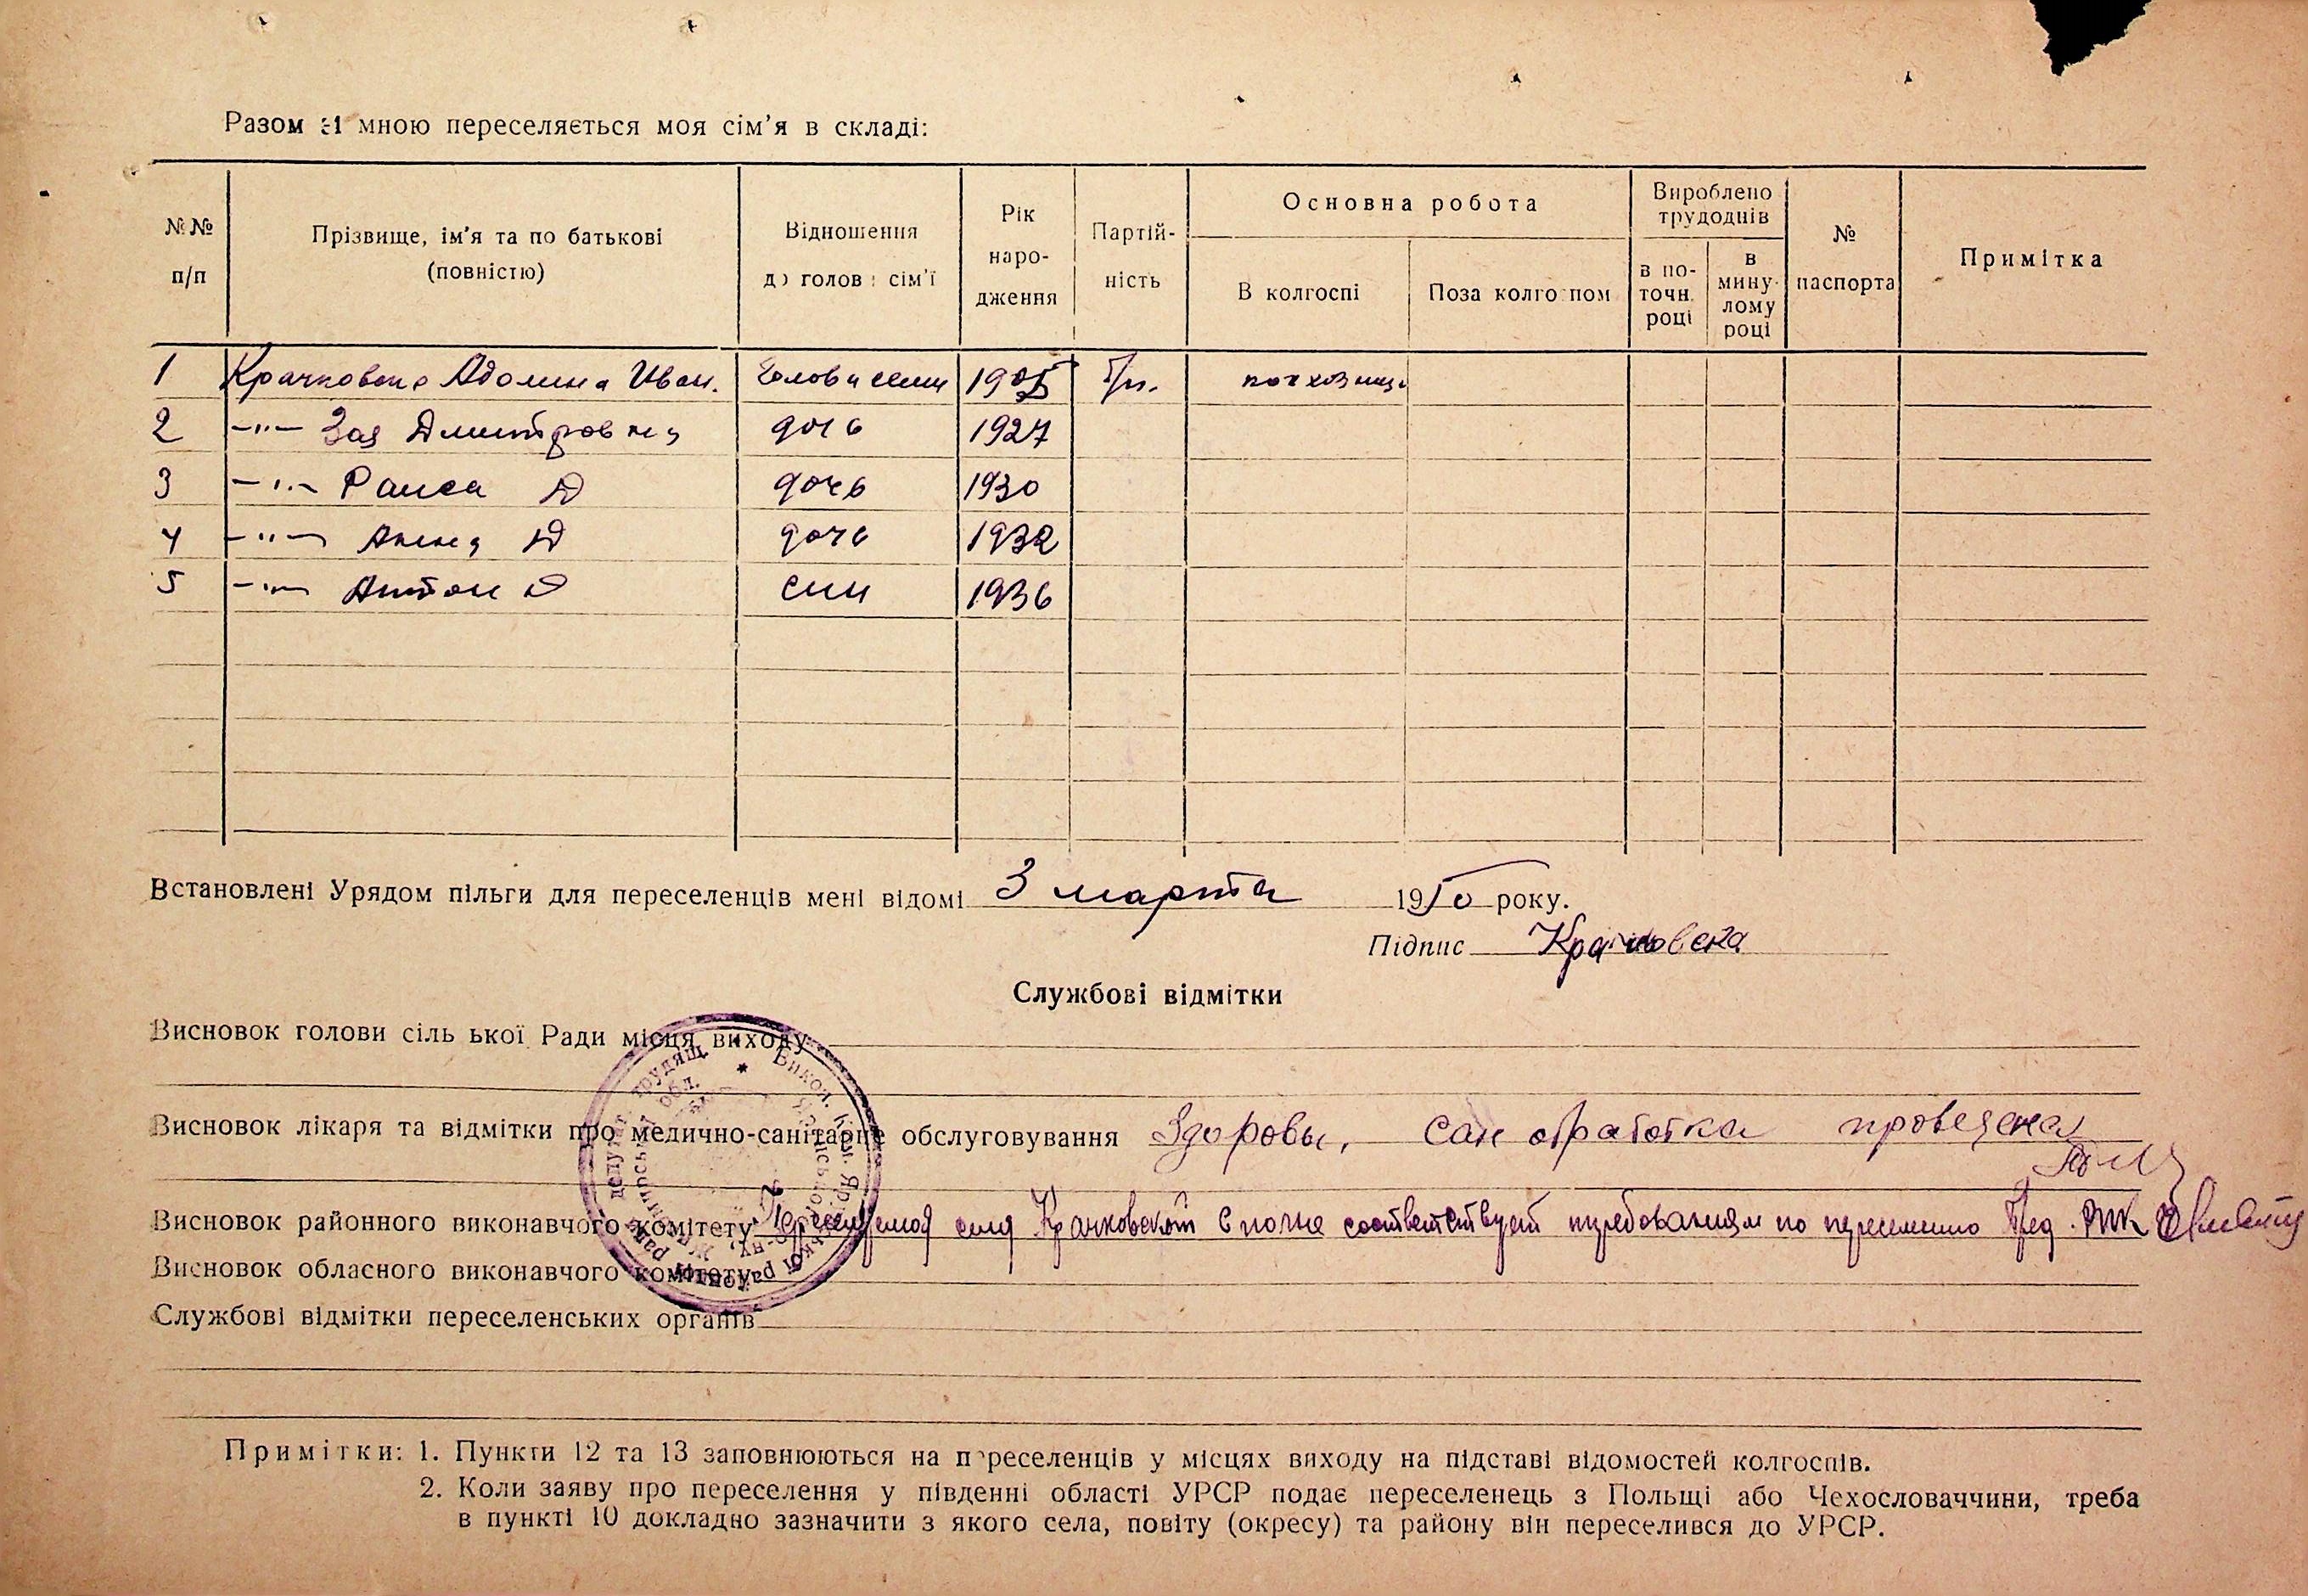 Разом зі мною переселяється моя сім'я в складі:
№№ п/п
Прізвище, ім'я та по батькові (повністю)
Відношення до голови сім'ї
Рік народження
Партійність
Основна робота
В колгоспі
Поза колгоспом
Вироблено трудоднів
в поточн. році
в минулому році
№ паспорта
Примітка
1 Крачковска Адолина Иван. голова семи 1905 б/п.
2 —"— Зоя Дмитровна дочь 1927
3 —"— Раиса Д дочь 1930
4 —"— Анна Д дочь 1932
5 —"— Антон Д син 1936
Встановлені Урядом пільги для переселенців мені відомі 3 марта 1950 року.
Підпис Крачковска
Службові відмітки
Висновок голови сільської Ради місця виходу
Висновок лікаря та відмітки про медично-санітарне обслуговування Здоровы, сан обработка проведена
Висновок районного виконавчого комітету Переселяемая семя Крачковской вполне соответствует требованиям по переселению Пред. РИК
Висновок обласного виконавчого комітету
Службові відмітки переселенських органів
Примітки: 1. Пункти 12 та 13 заповнюються на переселенців у місцях виходу на підставі відомостей колгоспів.
2. Коли заяву про переселення у південні області УРСР подає переселенець з Польщі або Чехословаччини, треба
в пункті 10 докладно зазначити з якого села, повіту (окресу) та району він переселився до УРСР.